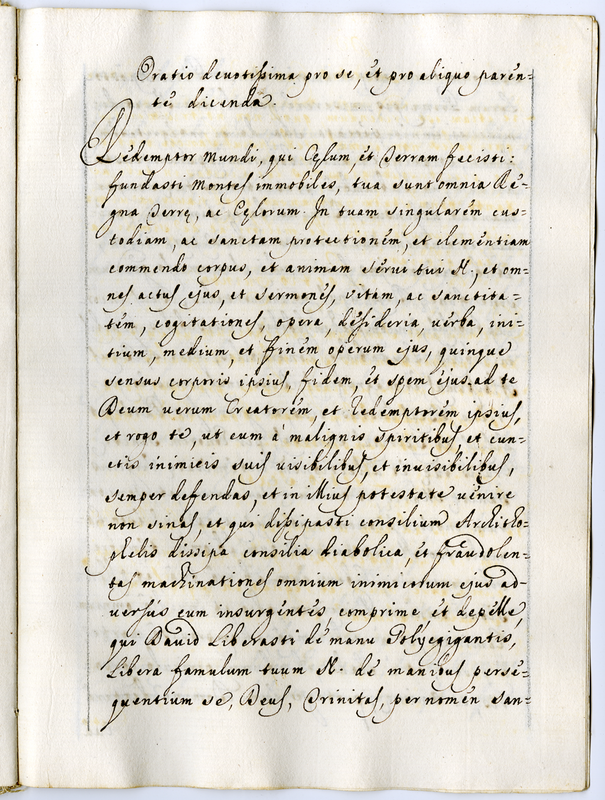 Oratio devotissima pro se, et pro aliquo paren=
te dicenda.
Redemptor Mundi, qui Cęlum et Terram fecisti:
fundasti Montes immobiles, tua sunt omnia Re=
gna Terrę, ac Cęlorum. In tuam singularem cus=
todiam, ac sanctam protectionem, et clementiam
commendo corpus, et animam servi tui N., et om=
nes actus ejus, et sermones, vitam, ac sanctita=
tem, cogitationes, opera, desideria, verba, ini=
tium, medium, et finem operum ejus, quinque
sensus corporis ipsius, fidem, et spem ejus ad te
Deum verum Creatorem, et Redemptorem ipsius,
et rogo te, ut eum à malignis spiritibus, et cun=
ctis inimicis suis uisibilibus, et inuisibilibus,
semper defendas, et in illius potestate venire
non sinas, et qui dissipasti consilium Architho=
phelis dissipa consilia diabolica, et fraudolen=
tas machinationes omnium inimicorum ejus ad=
versús eum insurgentes, comprime et depelle,
qui David Liberasti de manu Golyegigantis,
Libera famulum tuum N. de manibus perse=
quentium se, Deus, Trinitas, per nomen san=